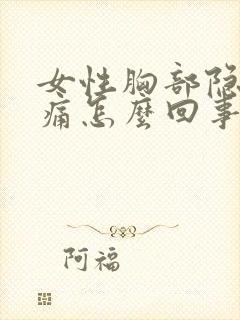 女性胸部隐
痛怎麽回事
阿福